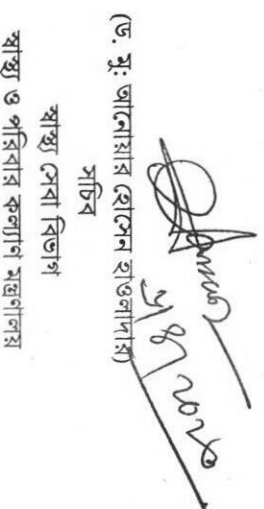 (ড. মু: আনোয়ার হোসেন হাওলাদার)
সচিব
স্বাস্থ্য সেবা বিভাগ
স্বাস্থ্য ও পরিবার কল্যাণ মন্ত্রণালয়